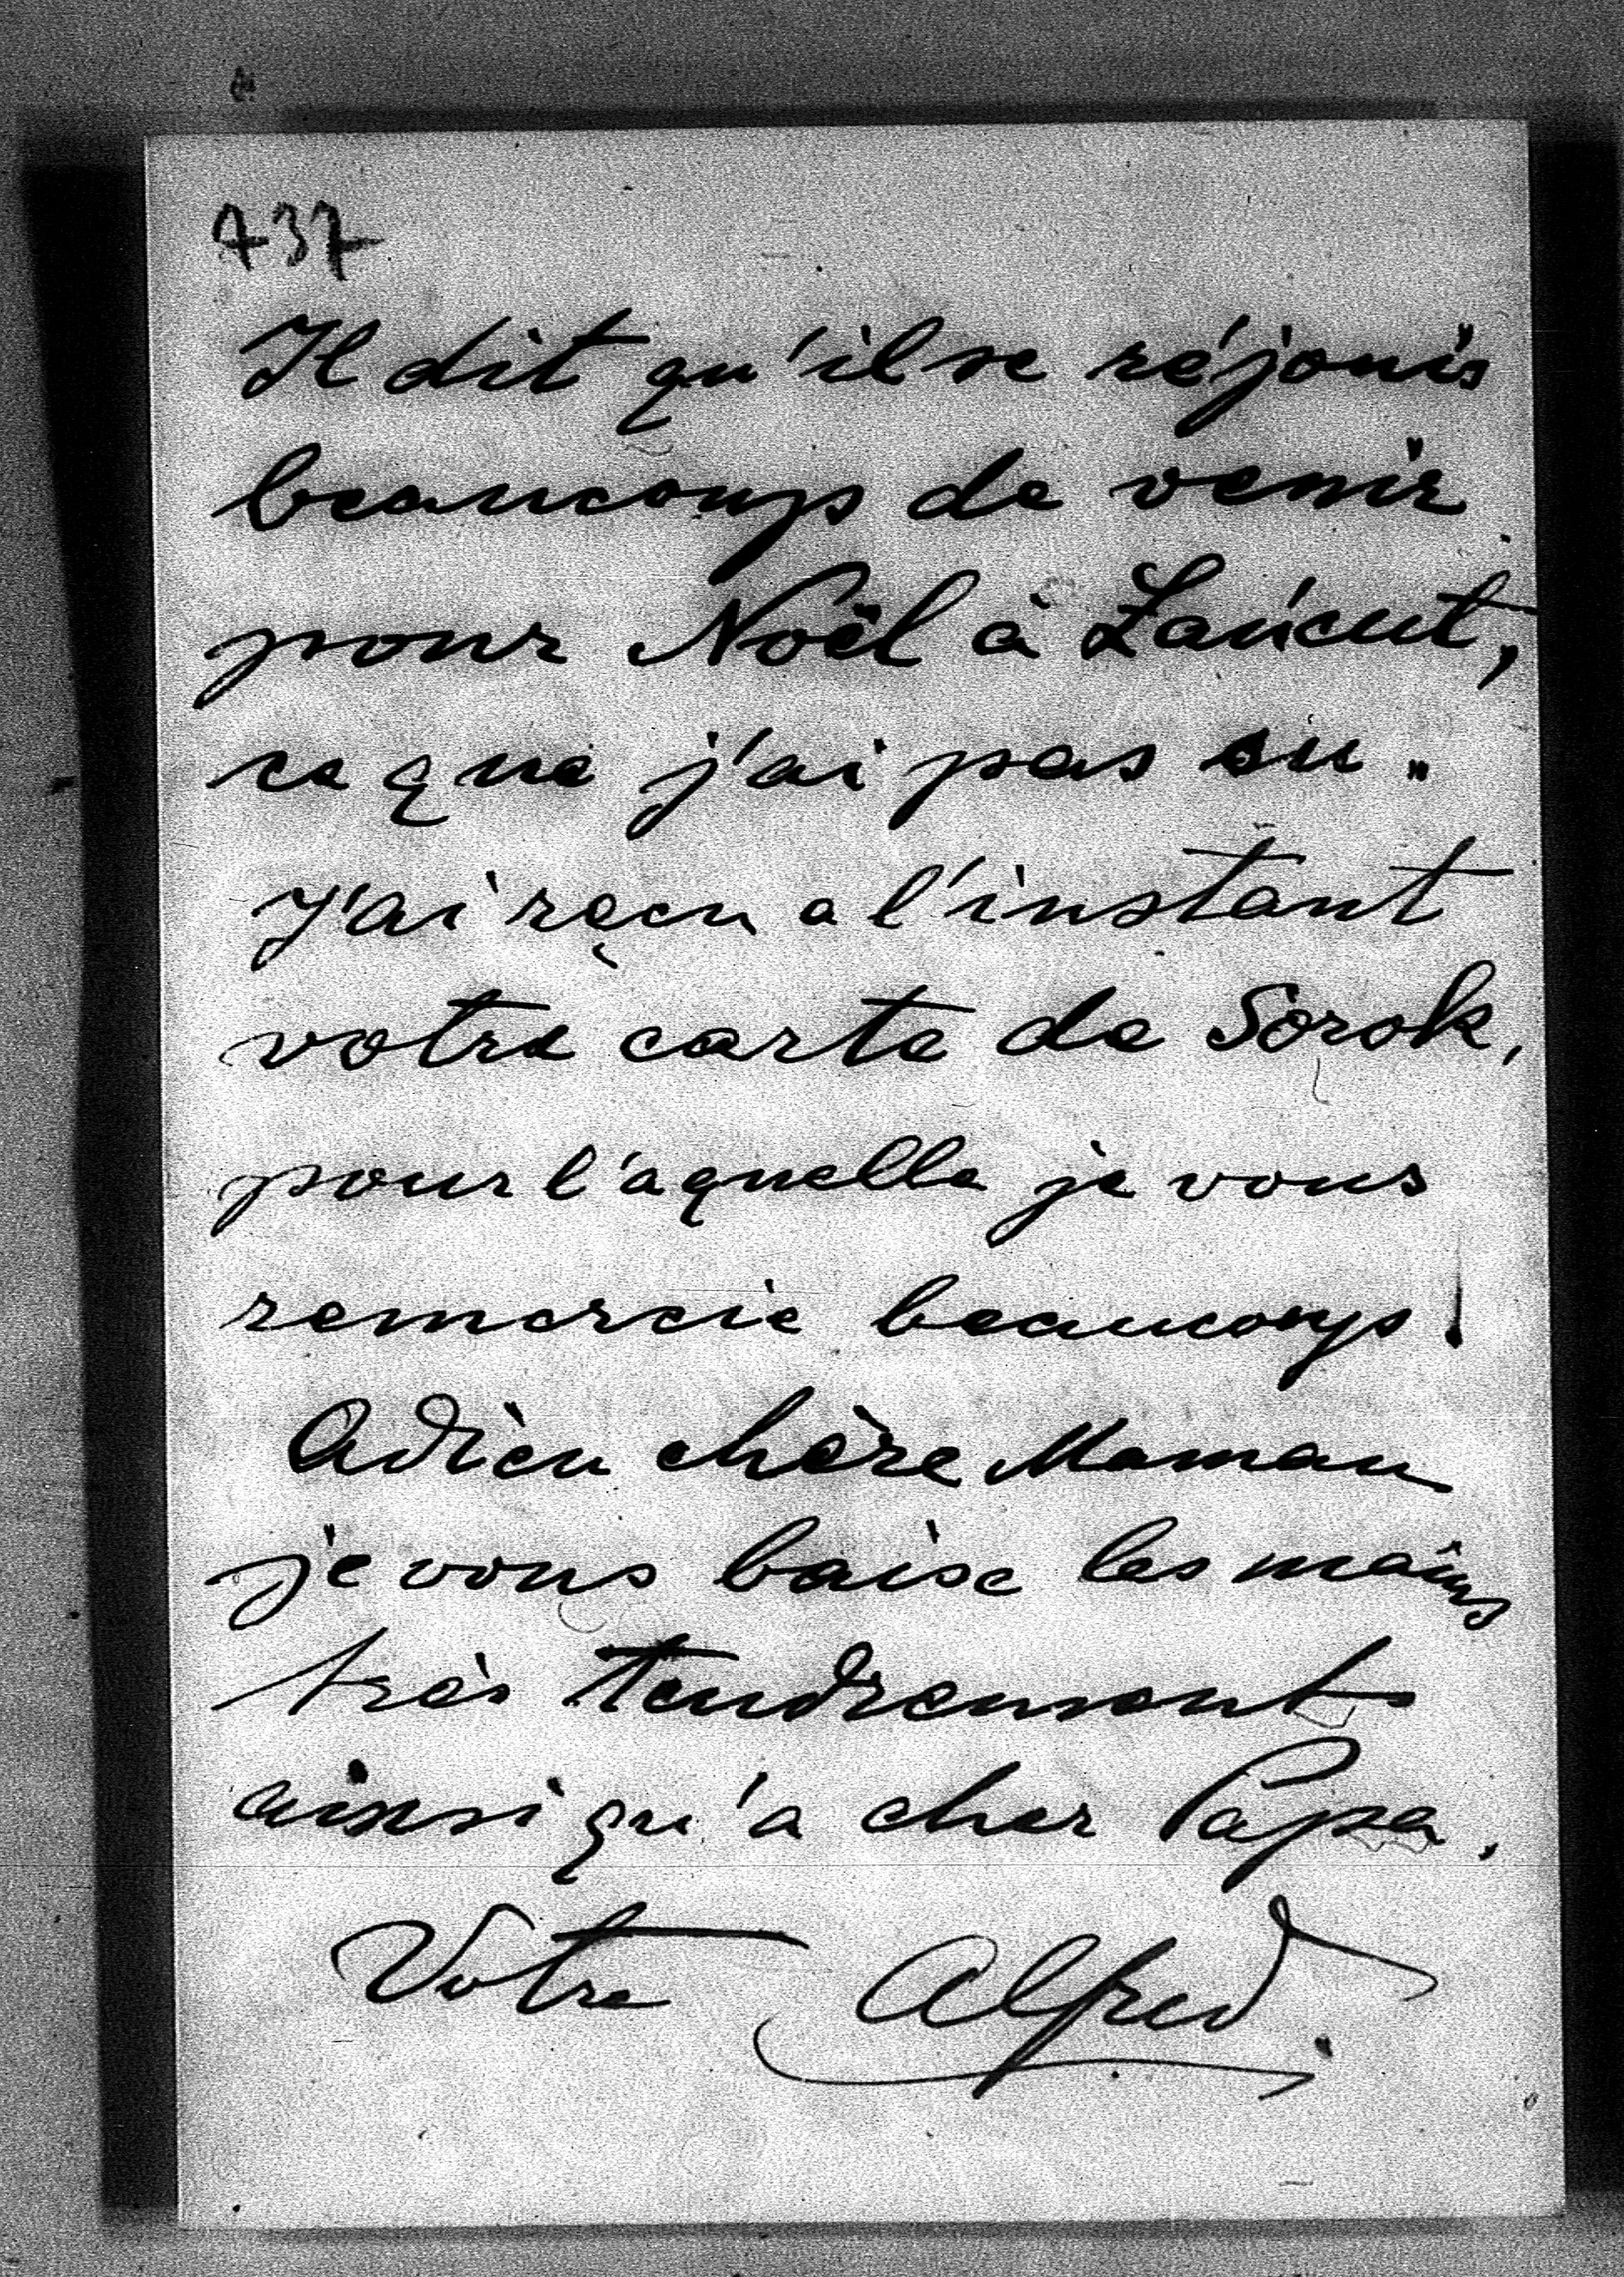 737
Il dit qu'il se réjouis
beaucoup de venir
pour Noël à Łańcut,
ce que j'ai pas su.
J'ai reçcu a l'instant
votre carte de Sorok,
pour l'aquelle je vous
remercie beaucoup!
Adieu chère Maman
je vous baise les mains
très tendrement
ainsi qu'a cher Papa.
Votre Alfred.